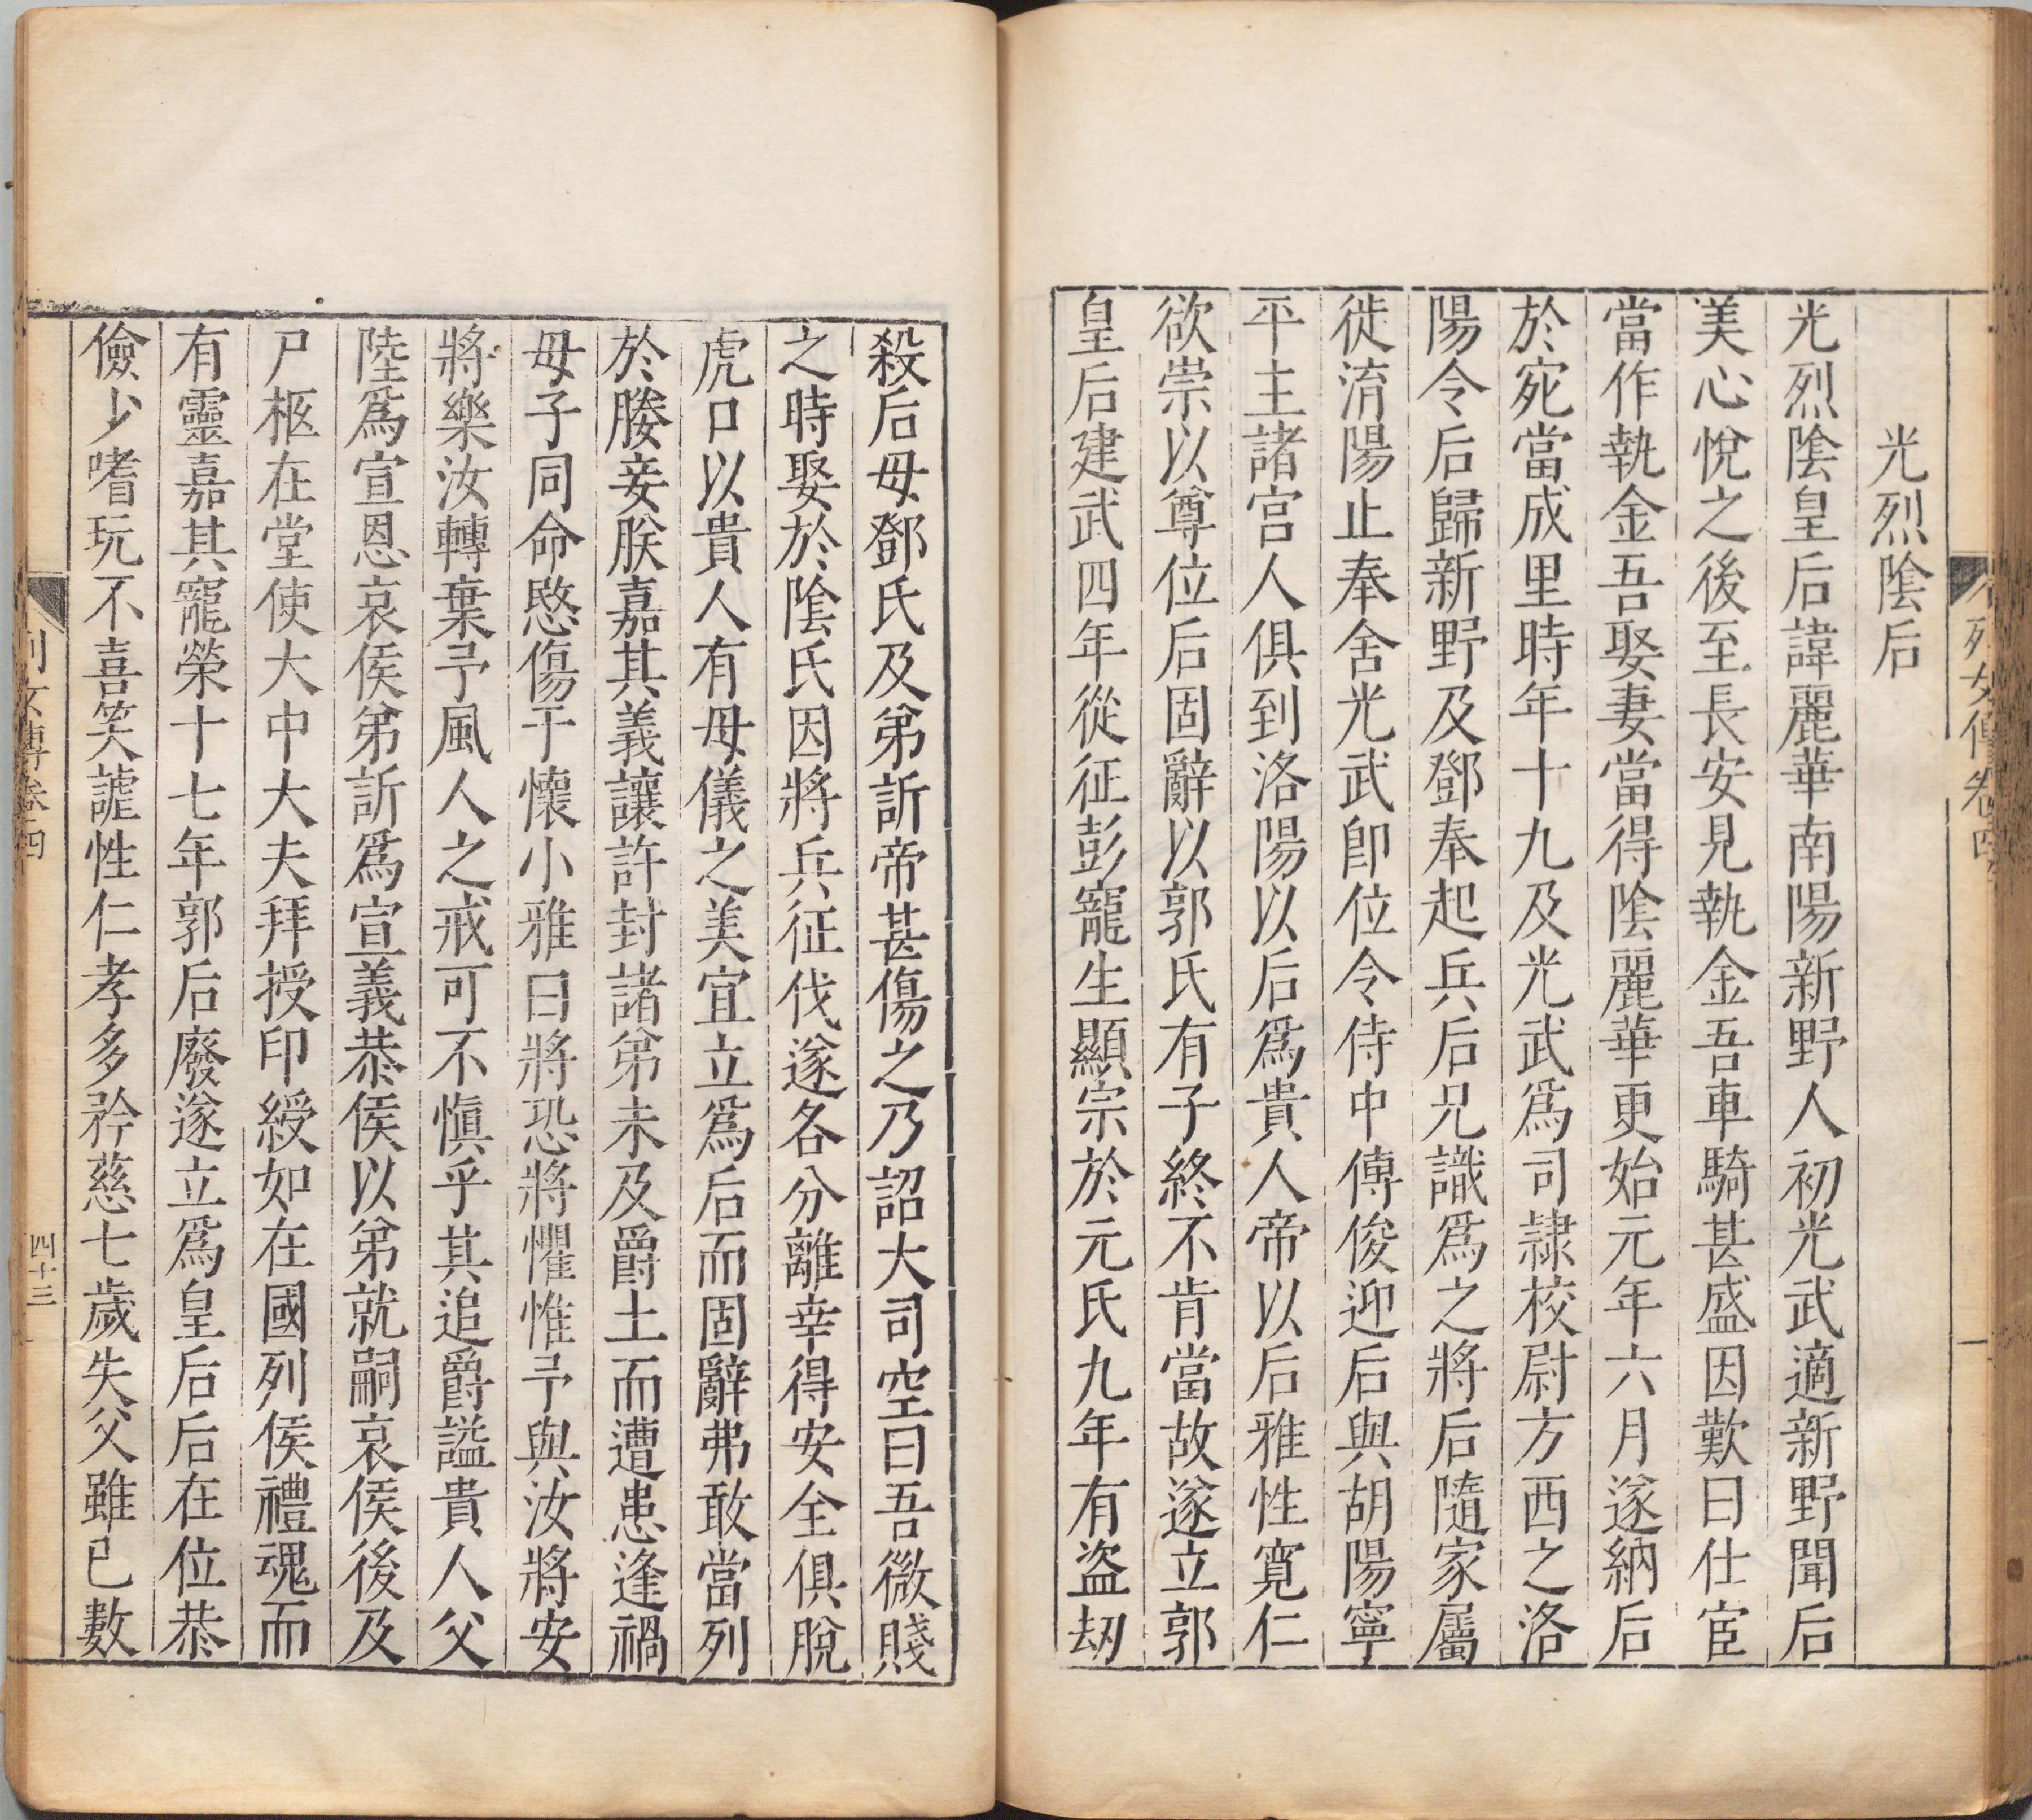 列女傳卷四
光烈陰后
光烈陰皇后諱麗華南陽新野人初光武適新野聞后
美心悅之後至長安見執金吾車騎甚盛因歎曰仕宦
當作執金吾娶妻當得陰麗華更始元年六月遂納后
於宛當成里時年十九及光武爲司隷校尉方西之洛
陽令后歸新野及鄧奉起兵后兄識爲之將后隨家屬
徙淯陽止奉舍光武即位令侍中傅俊迎后與胡陽寧
平主諸宮人俱到洛陽以后爲貴人帝以后雅性寬仁
欲崇以尊位后固辭以郭氏有子終不肯當故遂立郭
皇后建武四年從征彭寵生顯宗於元氏九年有盜劫
殺后母鄧氏及弟訢帝甚傷之乃詔大司空曰吾微賤
之時娶於陰氏因將兵征伐遂各分離幸得安全俱脫
虎口以貴人有母儀之美宜立爲后而固辭弗敢當列
於媵妾朕嘉其義讓許封諸弟未及爵土而遭患逢禍
母子同命愍傷于懷小雅曰將恐將懼惟予與汝將安
將樂汝轉棄予風人之戒可不慎乎其追爵謚貴人父
陸爲宣恩哀侯弟訢爲宣義恭侯以弟就嗣哀侯後及
尸柩在堂使大中大夫拜授印綬如在國列侯禮魂而
有靈嘉其寵榮十七年郭后廢遂立爲皇后后在位恭
儉少嗜玩不喜笑謔性仁孝多矜慈七歲失父雖已數
列女傳卷四
四十三